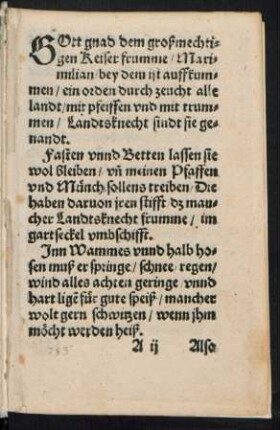 GOtt gnad dem großmechti-
gen Keiser frumme / Maxi-
milian / bey dem ist auffkum-
men / ein orden durch zeucht alle
landt / mit pfeiffen vnd mit trum-
men / Landtsknecht sindt sie ge-
nandt.
Fasten vnnd Betten lassen sie
wol bleiben / vñ meinen Pfaffen
vnd Münch sollens treiben / Die
haben daruon jren stifft dz man-
cher Landtsknecht frumme / im
gartseckel vmbschifft.
Inn Wammes vnnd halb ho-
sen muß er springe / schnee / regen /
wind alles achten geringe vnnd
hart ligē für gute speiß / mancher
wolt gern schwitzen / wenn jhm
möcht werden heiß.
A ij Also